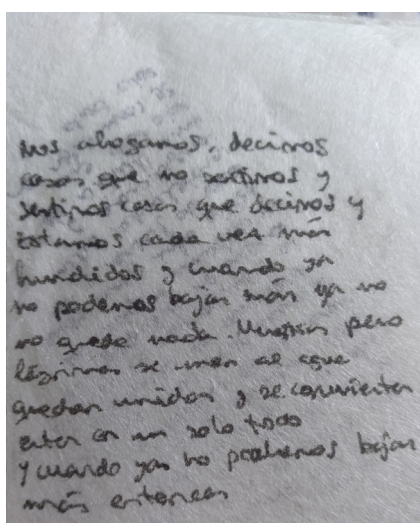 Nos ahogamos, decimos
cosas que no sentimos y
sentimos cosas que decimos y
estamos cada vez más
hundidos y cuando ya
no podemos bajar más ya no
no queda nada. Nuestras pero
lágrimas se unen al agua
quedan unidas y se convierten
en un solo todo
y cuando ya no podemos bajar
más entonces